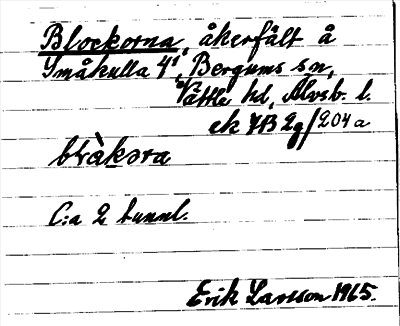 Blockorna, åkerfält å
Småkulla 4¹, Bergums sn,
Vättle hd, Älvsb. l.
ek 7B 2g/204a
bràkəra
C:a 2 tunnl.
Erik Larsson 1965.